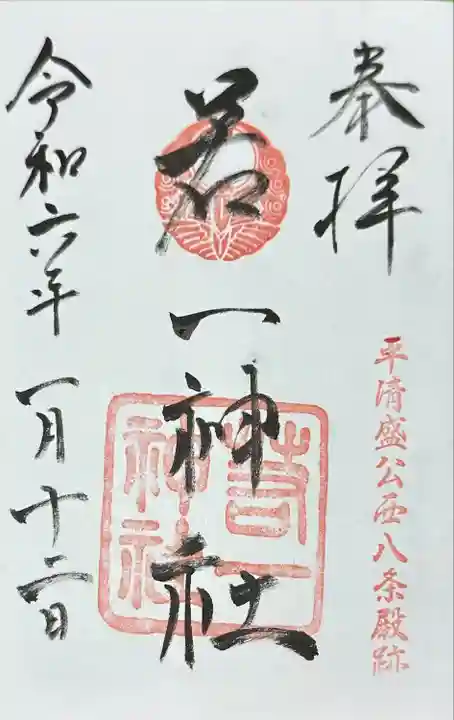 奉拝
平清盛公西八条殿跡
若一神社
若一神社
令和六年一月十二日